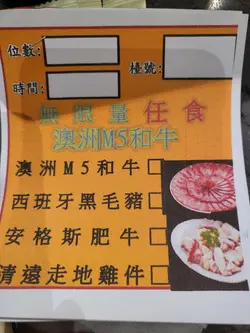 位數:
檯號:
時間:
無限量任食
澳洲M5和牛
澳洲M5和牛
西班牙黑毛豬
安格斯肥牛
清遠走地雞件